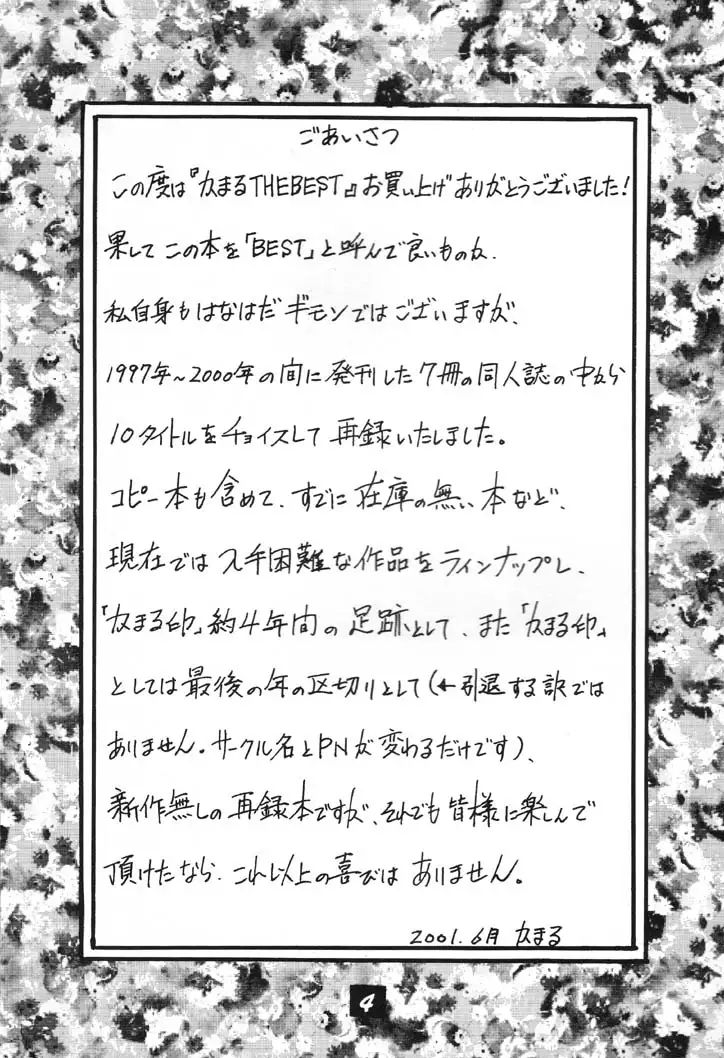 ごあいさつ
この度は『カまるTHEBEST』お買い上げありがとうございました!
果してこの本を「BEST」と呼んで良いものか、
私自身もはなはだギモンではございますが、
1997年~2000年の間に発刊した7冊の同人誌の中から
10タイトルをチョイスして再録いたしました。
コピー本も含めて、すでに在庫の無い本など、
現在では入手困難な作品をラインナップし、
「カまる印」約4年間の足跡として、また「カまる印」
としては最後の年の区切りとして(←引退する訳では
ありません。サークル名とPNが変わるだけです)、
新作無しの再録本ですが、それでも皆様に楽しんで
頂けたなら、これ以上の喜びはありません。
2001.6月 カまる
4